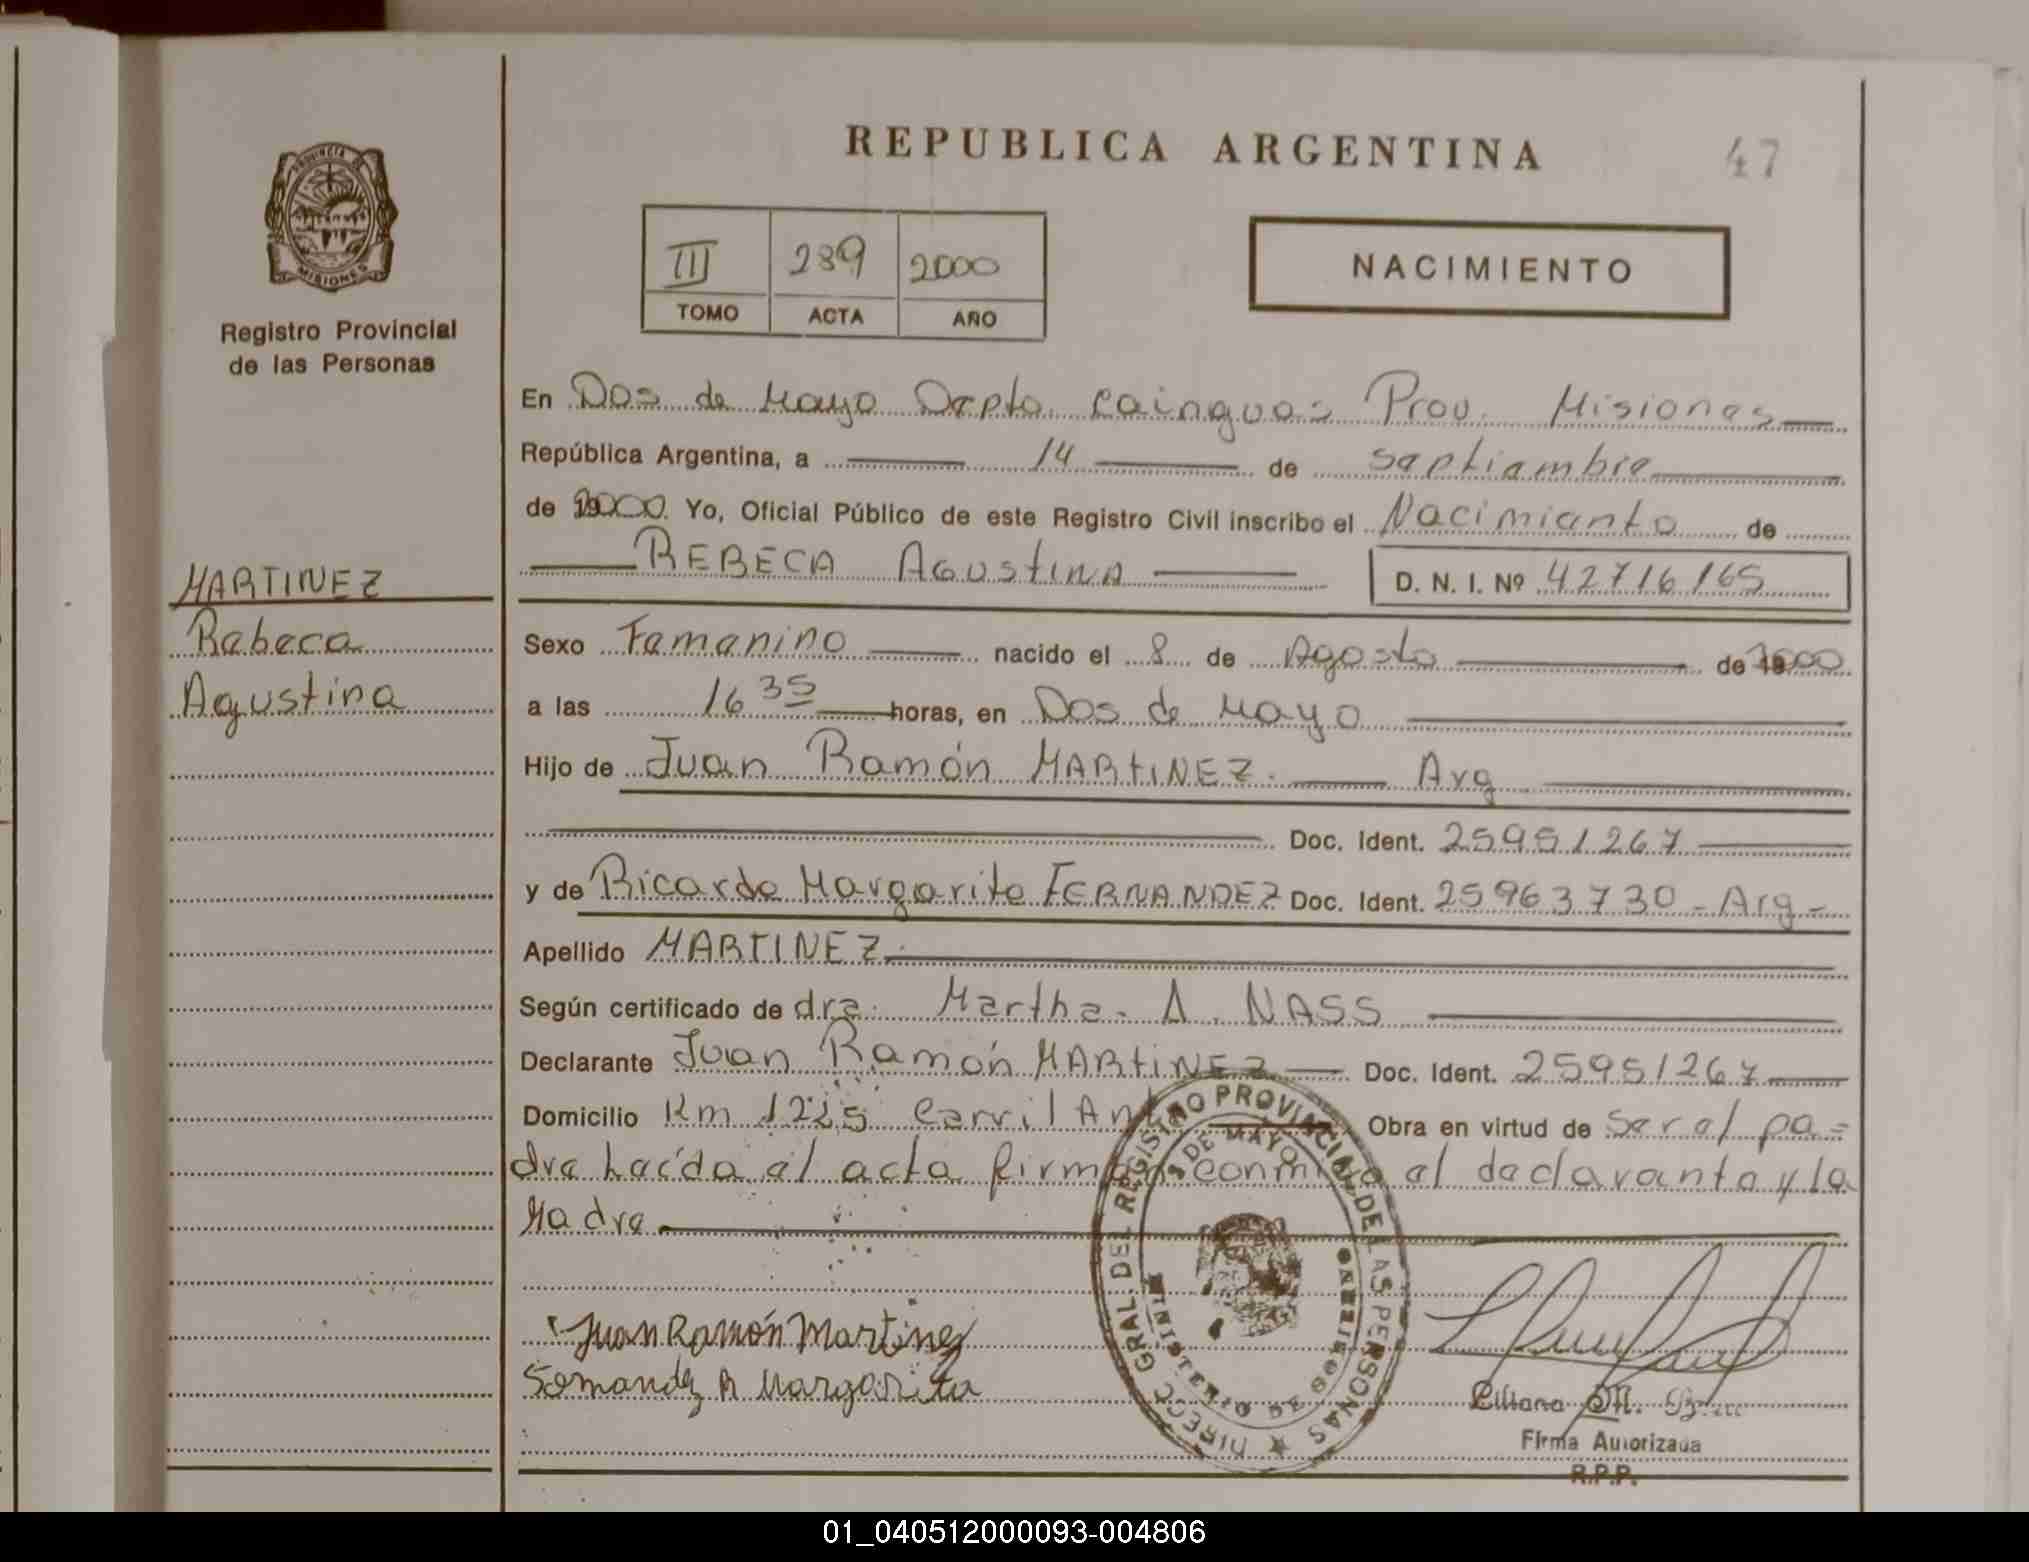 REPUBLICA ARGENTINA
47
PROVINCIA DE
MISIONES
Registro Provincial
de las Personas
III 289 2000
TOMO ACTA AÑO
NACIMIENTO
En Dos de Mayo Depto Cainguas Prov. Misiones
República Argentina, a 14 de septiembre
de 2000. Yo, Oficial Público de este Registro Civil inscribo el Nacimiento de
REBECA AGUSTINA D. N. I. Nº 42716165
MARTINEZ
Rebeca
Agustina
Sexo Femenino nacido el 8 de Agosto de 2000
a las 16 35 horas, en Dos de Mayo
Hijo de Juan Ramón MARTINEZ. Arg
Doc. Ident. 25951267
y de Ricarda Margarita FERNANDEZ Doc. Ident. 25963730 - Arg -
Apellido MARTINEZ.
Según certificado de dra. Martha. A. NASS
Declarante Juan Ramón MARTINEZ Doc. Ident. 25951267
Domicilio Km 1225 Carril Obra en virtud de ser el pa=
dre Leída el acta firman conmigo el declarante y la
Madre
DIRECC GRAL DEL REGISTRO PROVINCIAL DE LAS PERSONAS
DE MAYO
MINISTERIO DE GOBIERNO
Juan Ramón Martinez
R Margarita
Liliana M.
Firma Autorizada
R.P.P.
01_040512000093-004806